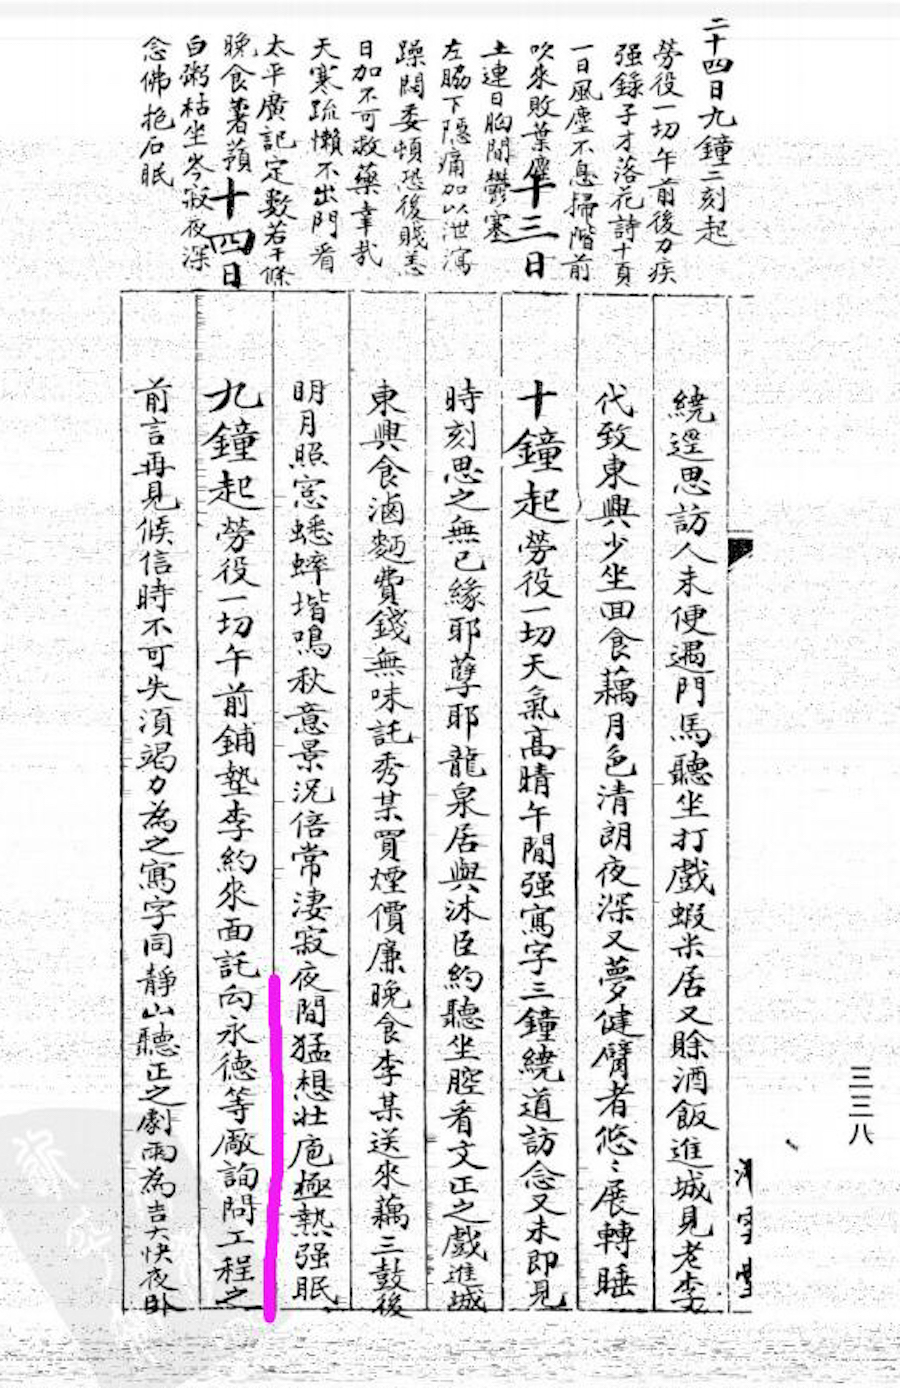 二十四日九鐘二刻起
勞役一切午前後力疾
强錄子才落花詩十頁
一日風塵不息掃階前
吹來敗葉塵
土連日胸間鬱塞
左脇下隱痛加以泄瀉
躁悶委頓恐後賤恙
日加不可救藥幸哉
天寒疏懶不出門看
太平廣記定數若干條
晚食薯蕷
白粥枯坐岑寂夜深
念佛抱石眠
繞逕思訪人未便過門馬聽坐打戲蝦米居又賒酒飯進城見老李
代致東興少坐回食藕月色清朗夜深又夢健臂者悠〻展轉睡
十三日
十鐘起勞役一切天氣高晴午間强寫字三鐘繞道訪念又未即見
時刻思之無已緣耶孽耶龍泉居與沐臣約聽坐腔看文正之戲進城
東興食滷麵費錢無味託秀某買煙價廉晚食李某送來藕三鼓後
明月照窓蟋蟀堦鳴秋意景況倍常淒寂夜間猛想壯庖極熱强眠
十四日
九鐘起勞役一切午前鋪墊李約來面託向永德等廠詢問工程之
前言再見候信時不可失須竭力為之寫字同靜山聽正之劇雨為吉大快夜卧
三三八